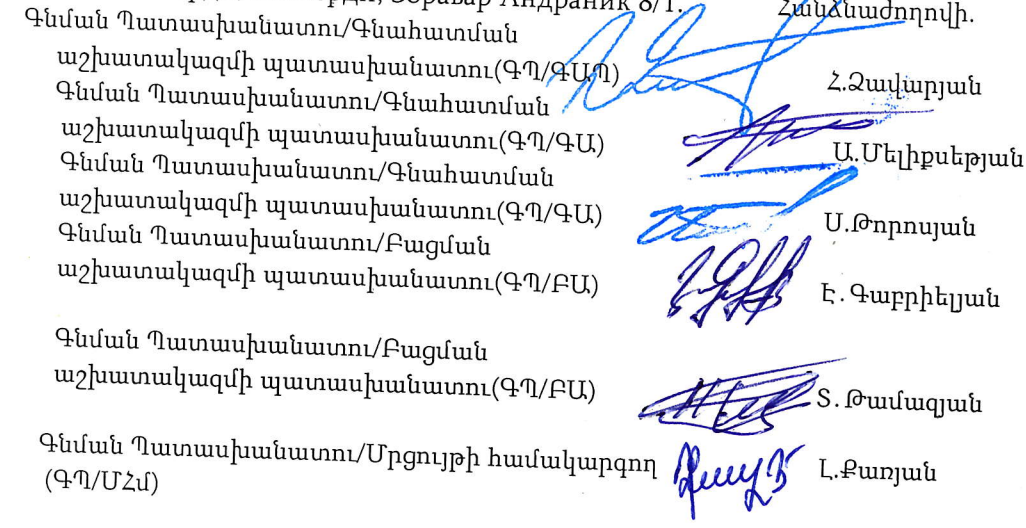 Зоравар Андраник 8/1. Հանձնաժողովի.
Գնման Պատասխանատու/Գնահատման
աշխատակազմի պատասխանատու(ԳՊ/ԳԱՊ) Հ.Զավարյան
Գնման Պատասխանատու/Գնահատման
աշխատակազմի պատասխանատու(ԳՊ/ԳԱ) Ա.Մելիքսեթյան
Գնման Պատասխանատու/Գնահատման
աշխատակազմի պատասխանատու(ԳՊ/ԳԱ) Ս.Թորոսյան
Գնման Պատասխանատու/Բացման
աշխատակազմի պատասխանատու(ԳՊ/ԲԱ) Է.Գաբրիելյան
Գնման Պատասխանատու/Բացման
աշխատակազմի պատասխանատու(ԳՊ/ԲԱ) Տ.Թամազյան
Գնման Պատասխանատու/Մրցույթի համակարգող Լ.Քառյան
(ԳՊ/ՄՀմ)